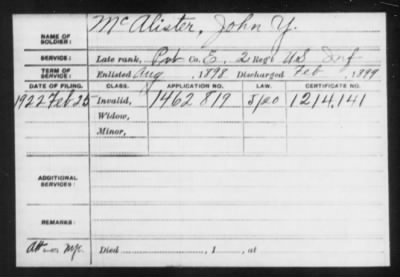 NAME OF SOLDIER: McAlister, John Y.
SERVICE: Late rank, Pvt Co. E, 2 Reg't U.S. Inf
TERM OF SERVICE: Enlisted Aug, 1898 Discharged Feb, 1899
DATE OF FILING. CLASS. APPLICATION NO. LAW. CERTIFICATE NO.
1922 Feb 25 Invalid, 1462819 1214,141
Widow,
Minor,
ADDITIONAL SERVICES:
REMARKS:
Died , 1 , at